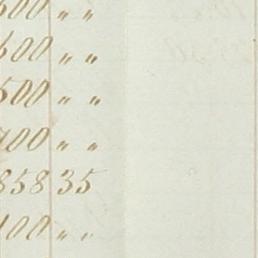 600 " "
600 " "
500 " "
700 " "
858 35
100 " "